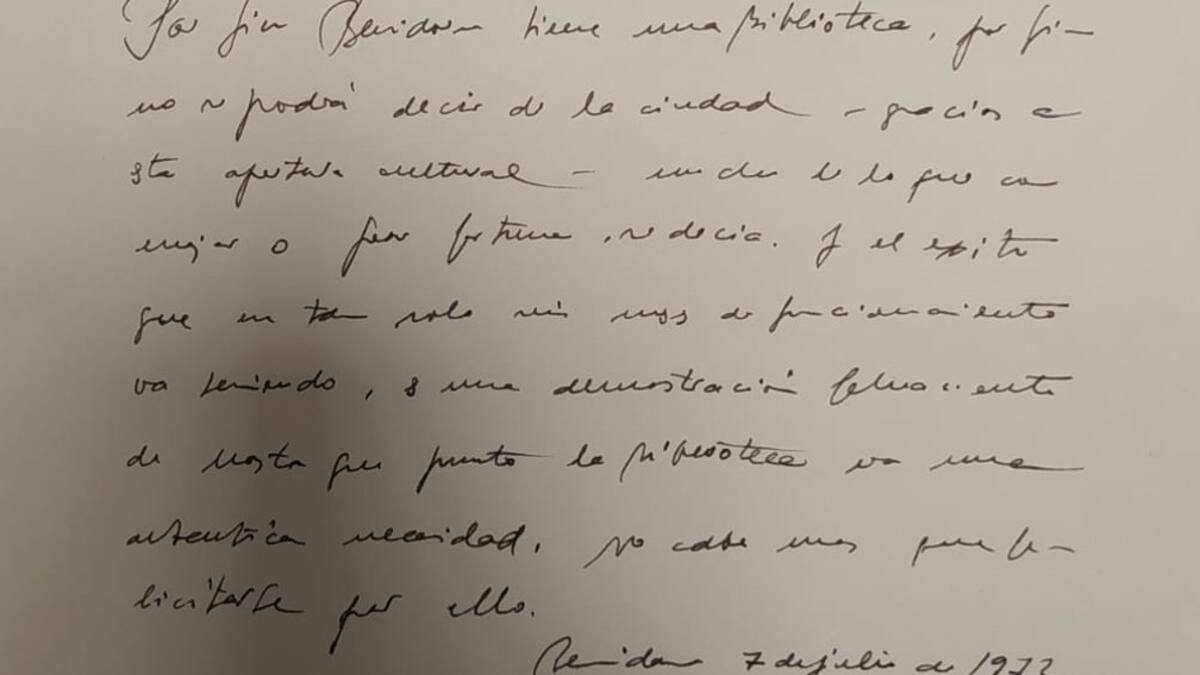 Por fin Benidorm tiene una Biblioteca, por fin
no se podrá decir de la ciudad - gracias a
esta apertura cultural - mucho de lo que con
mejor o peor fortuna, se decía. Y el exito
que en tan solo seis meses de funcionamiento
va teniendo, es una demostración fehaciente
de hasta que punto la biblioteca era una
autentica necesidad. No cabe mas que fe-
licitarse por ello.
Benidorm 7 de julio de 1972